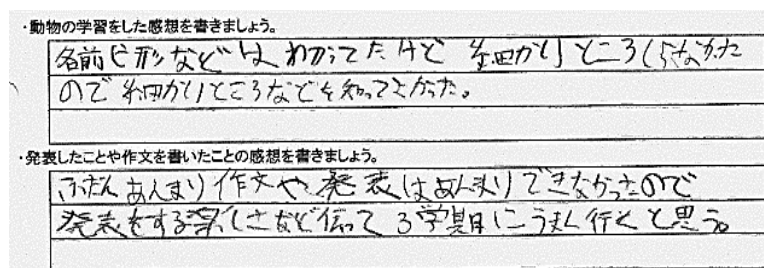 ・動物の学習をした感想を書きましょう。
名前や形などは わかってたけど 細かいところしらなかった
ので 細かいところなどを知ってよかった。
・発表したことや作文を書いたことの感想を書きましょう。
ふだん あんまり 作文や 発表は あんまり できなかったので
発表をする楽しさなど伝って 3学期にうまく行くと思う。